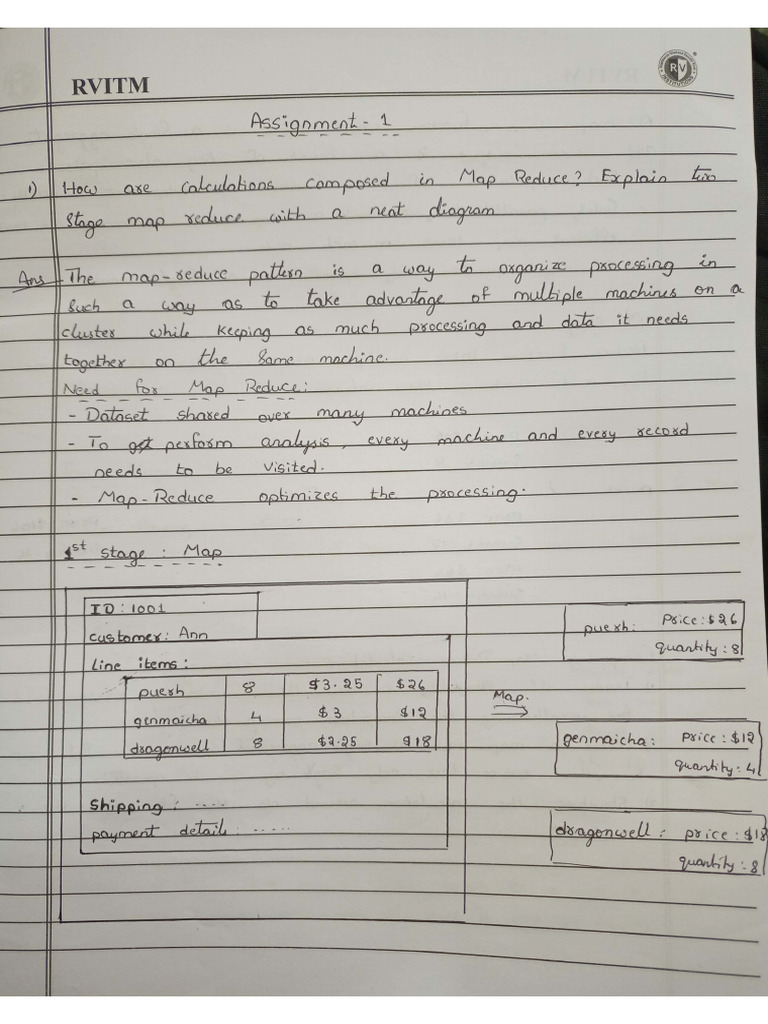 RVITM
RV
Assignment - 1
1) How are calculations composed in Map Reduce? Explain two
stage map reduce with a neat diagram
Ans The map-reduce pattern is a way to organize processing in
such a way as to take advantage of multiple machines on a
cluster while keeping as much processing and data it needs
together on the same machine.
Need for Map Reduce:
- Dataset shared over many machines
- To perform analysis, every machine and every record
needs to be visited.
- Map-Reduce optimizes the processing.
1st stage : Map
ID: 1001
customer: Ann
Line items:
puerh 8 $3.25 $26
genmaicha 4 $3 $12
dragonwell 8 $2.25 $18
Shipping : ....
payment detail : .....
Map.
puerh: Price: $26
quantity: 8
genmaicha: Price: $12
quantity: 4
dragonwell: price: $18
quantity: 8